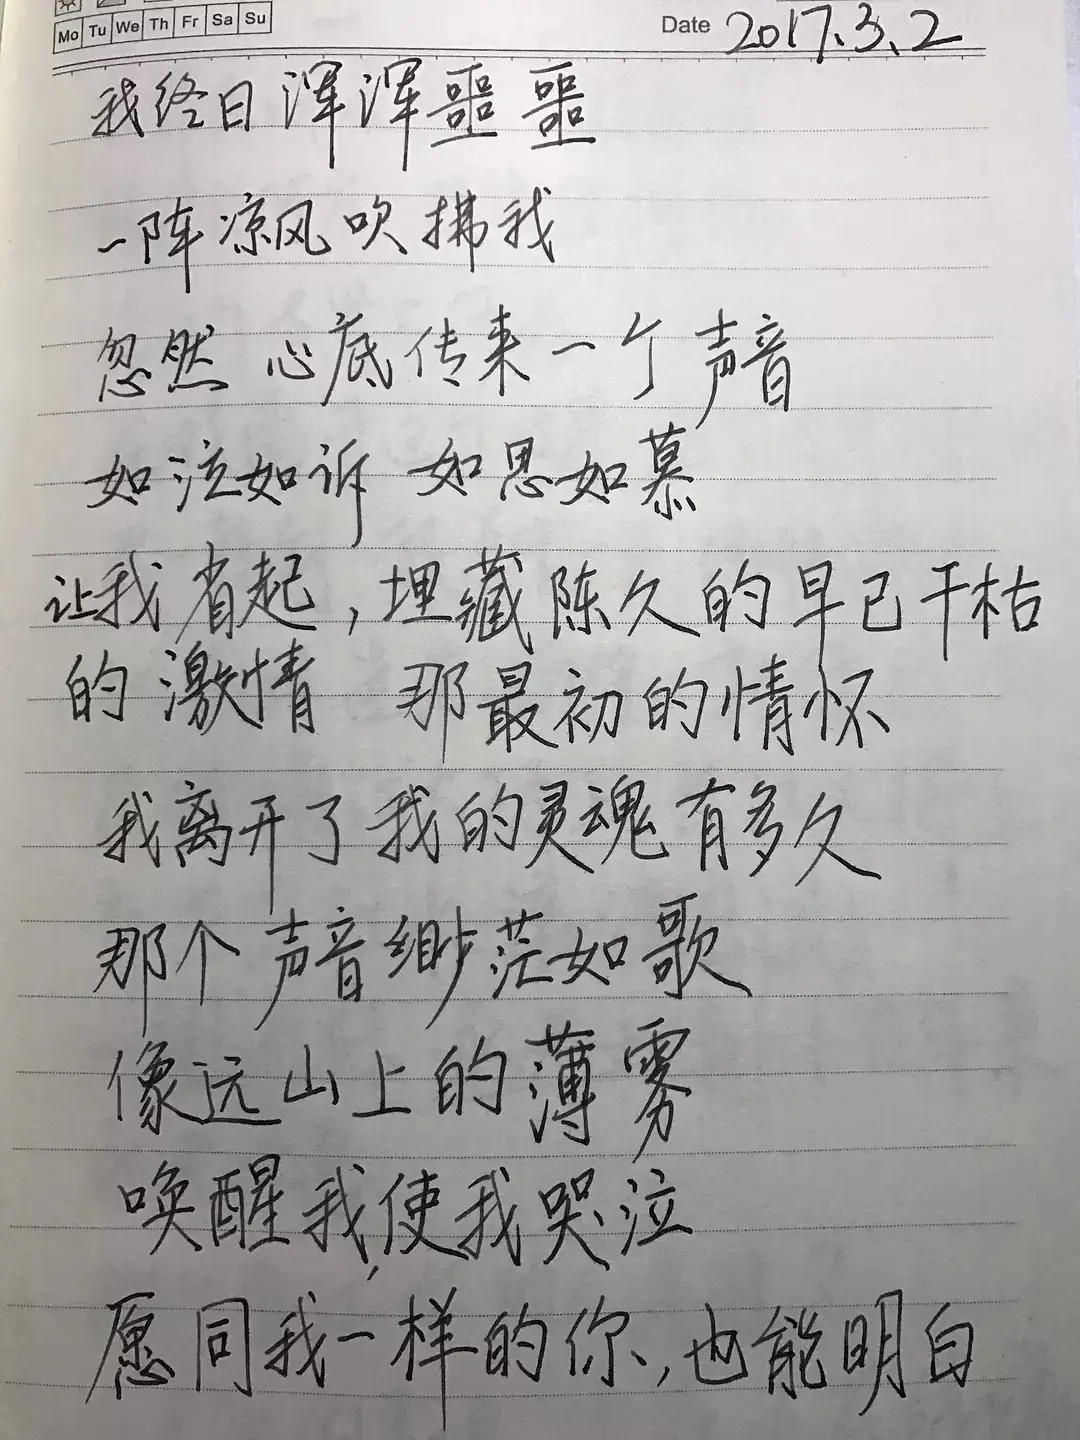 Mo Tu We Th Fr Sa Su
Date 2017.3.2
我终日浑浑噩噩
一阵凉风吹拂我
忽然 心底传来一个声音
如泣如诉 如思如慕
让我省起，埋藏陈久的早已干枯
的激情 那最初的情怀
我离开了我的灵魂有多久
那个声音缈茫如歌
像远山上的薄雾
唤醒我，使我哭泣
愿同我一样的你，也能明白